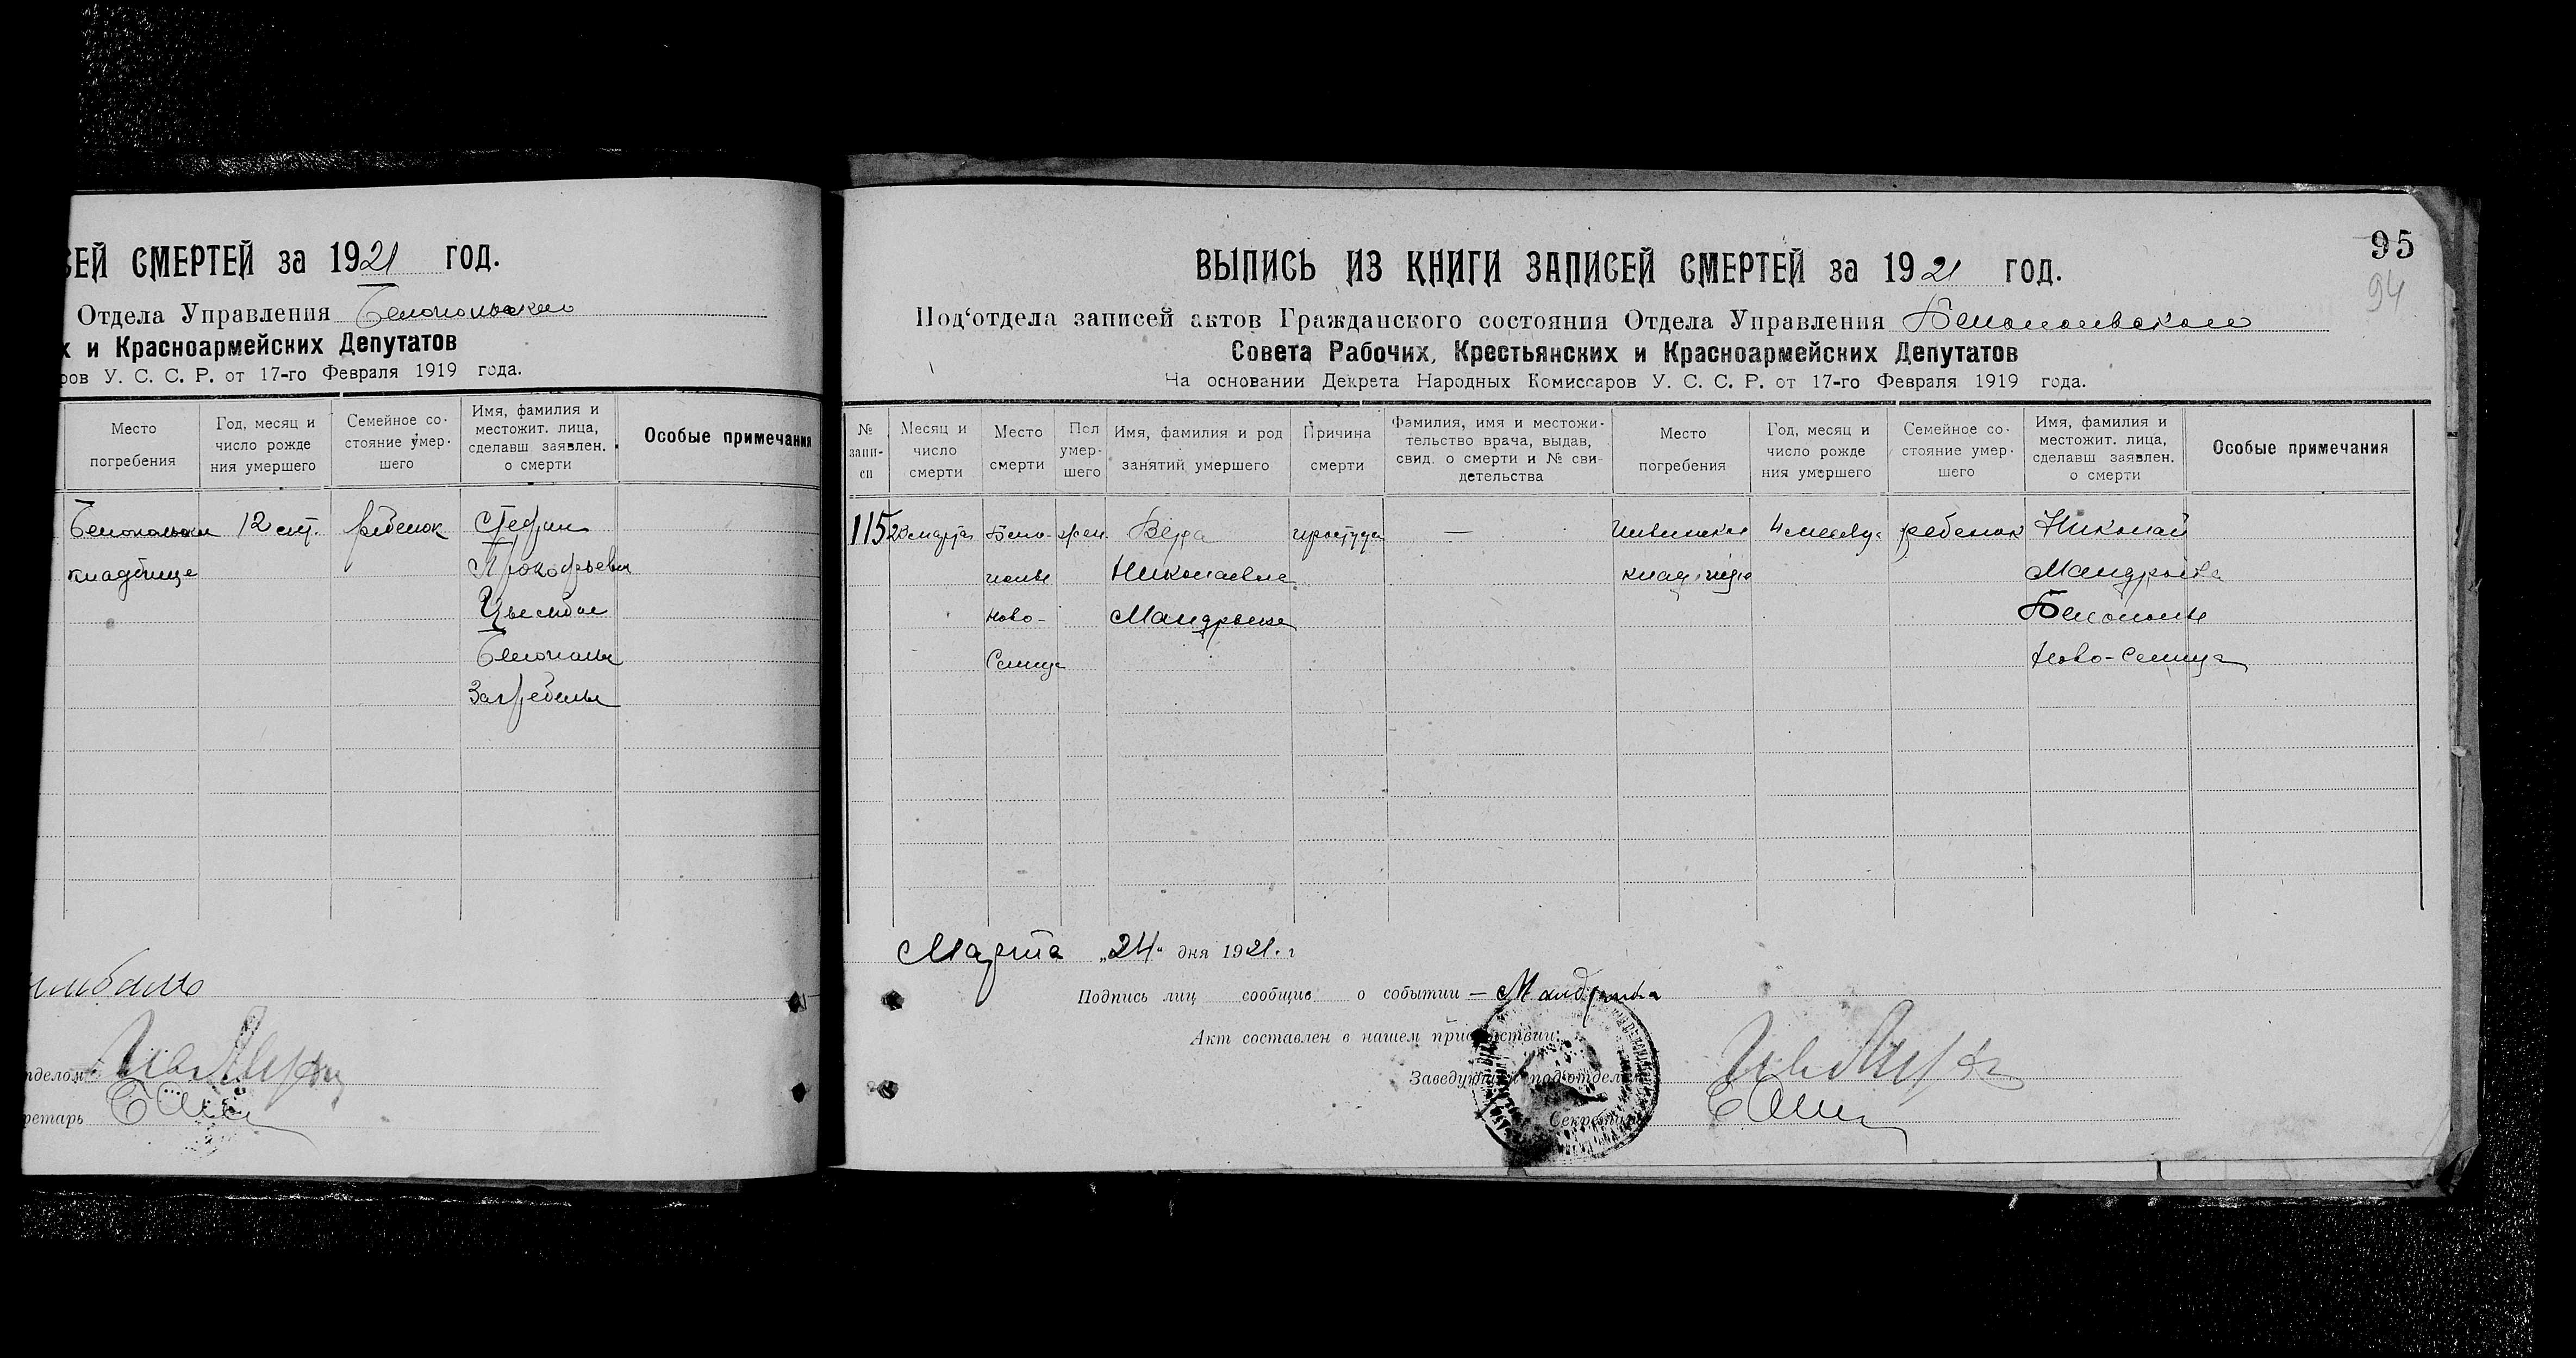 СЕЙ СМЕРТЕЙ за 1921 год.
Отдела Управления Белопольского
х и Красноармейских Депутатов
ров У. С. С. Р. от 17-го Февраля 1919 года.
Место погребения
Год, месяц и число рожде ния умершего
Семейное со- стояние умер- шего
Имя, фамилия и местожит. лица, сделавш заявлен. о смерти
Особые примечания
Белопольски 12 ребенок Стефан
кладбище Прокофьевич
Белополье
Загребелье
отделом
ретарь
95
94
ВЫПИСЬ ИЗ КНИГИ ЗАПИСЕЙ СМЕРТЕЙ за 1921 год.
Под‘отдела записей актов Гражданского состояния Отдела Управления Белопольского
Совета Рабочих, Крестьянских и Красноармейских Депутатов
На основании Декрета Народных Комиссаров У. С. С. Р. от 17-го Февраля 1919 года.
№ запи- си
Месяц и число смерти
Место смерти
Пол умер- шего
Имя, фамилия и род занятий умершего
Причина смерти
Фамилия, имя и местожи- тельство врача, выдав, свид. о смерти и № сви- детельства
Место погребения
Год, месяц и число рожде ния умершего
Семейное со- стояние умер- шего
Имя, фамилия и местожит. лица, сделавш заявлен. о смерти
Особые примечания
115 23 марта Бело- жен. Вера простуда — 4 месяца ребенок Николай
полье Николаевна кладбище
Ново- Белополье
Селица Ново-Селица
Марта „24“ дня 1921. г
Подпись лиц сообщив о событии —
Акт составлен в нашем присутствии:
Заведующий под‘отделом
Секретарь